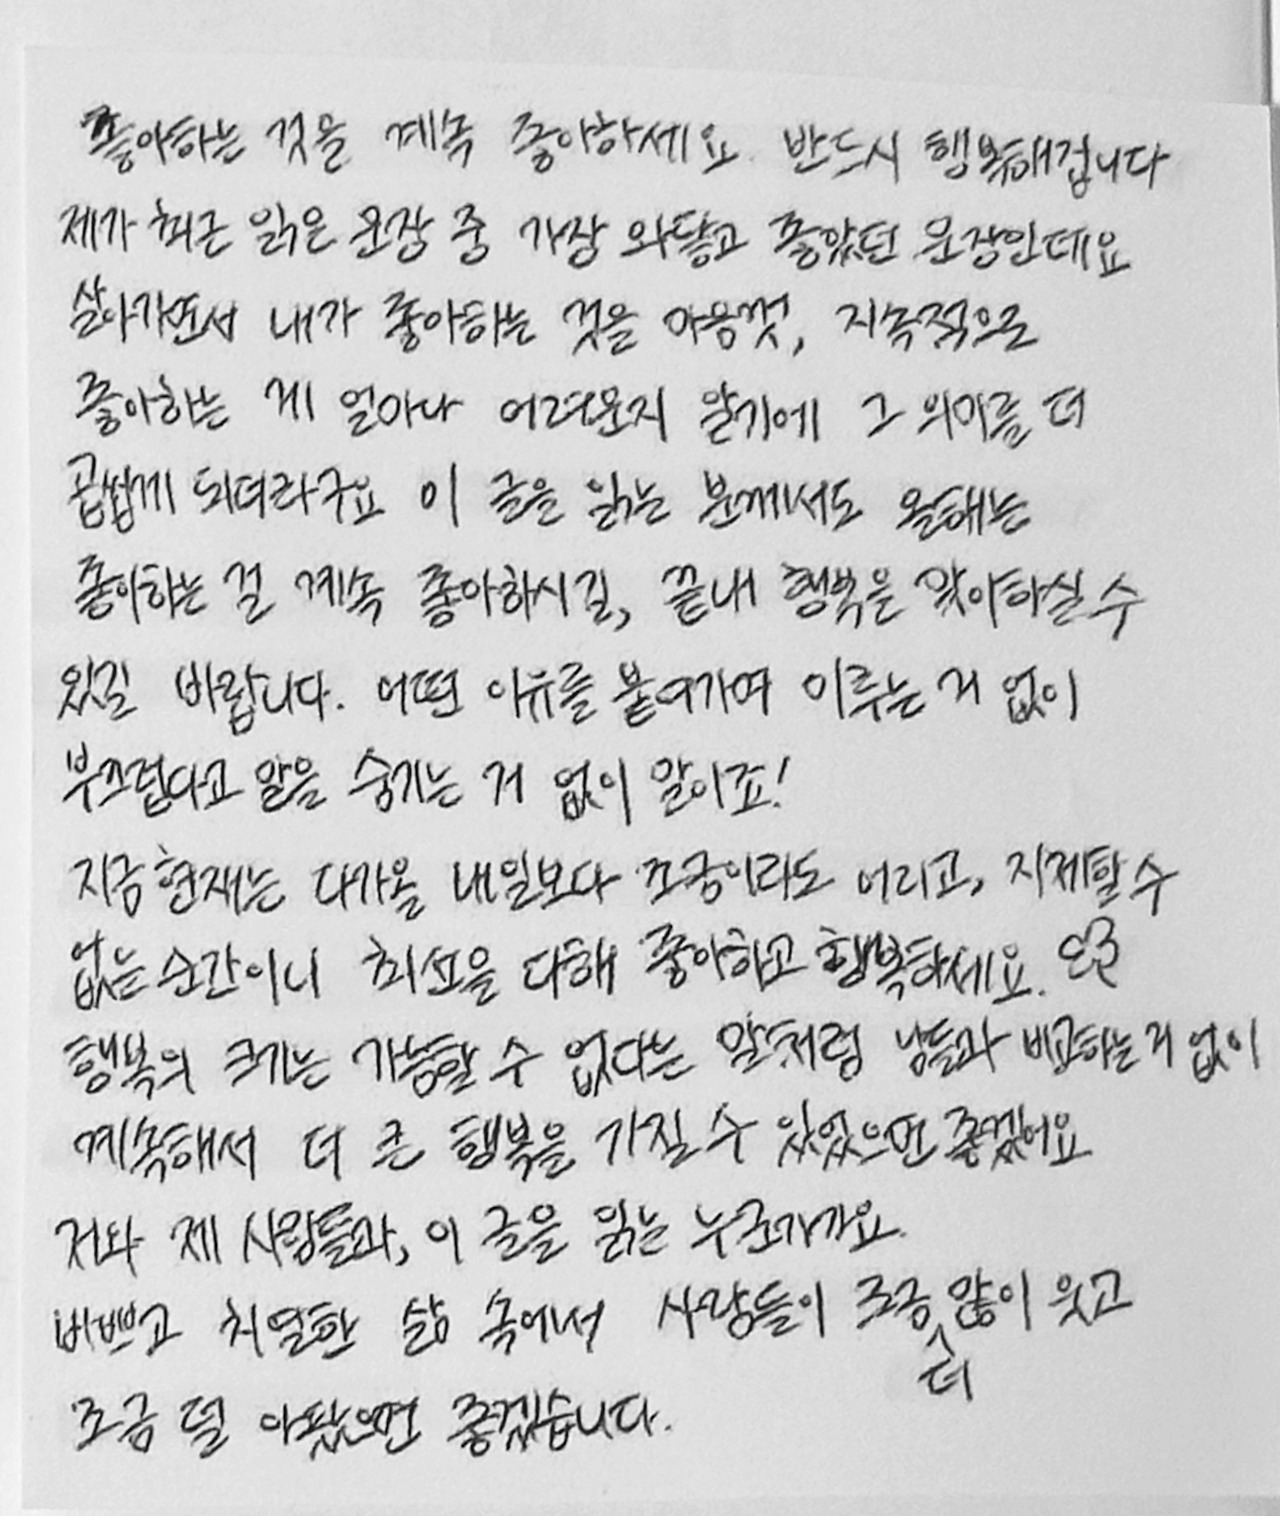 좋아하는 것을 계속 좋아하세요. 반드시 행복해집니다
제가 최근 읽은 문장 중 가장 와닿고 좋았던 문장인데요
살아가면서 내가 좋아하는 것을 마음껏, 지속적으로
좋아하는 게 얼마나 어려운지 알기에 그 의미를 더
곱씹게 되더라구요 이 글을 읽는 분께서도 올해는
좋아하는 걸 계속 좋아하시길, 끝내 행복을 맞이하실 수
있길 바랍니다. 어떤 이유를 붙여가며 미루는 거 없이
부끄럽다고 맘을 숨기는 거 없이 말이죠!
지금 현재는 다가올 내일보다 조금이라도 어리고, 지체할 수
없는 순간이니 최선을 다해 좋아하고 행복하세요.
행복의 크기는 가늠할 수 없다는 말처럼 남들과 비교하는 거 없이
계속해서 더 큰 행복을 가질 수 있었으면 좋겠어요
저와 제 사람들과, 이 글을 읽는 누군가가요.
바쁘고 치열한 삶 속에서 사람들이 조금 더 많이 웃고
조금 덜 아팠으면 좋겠습니다.